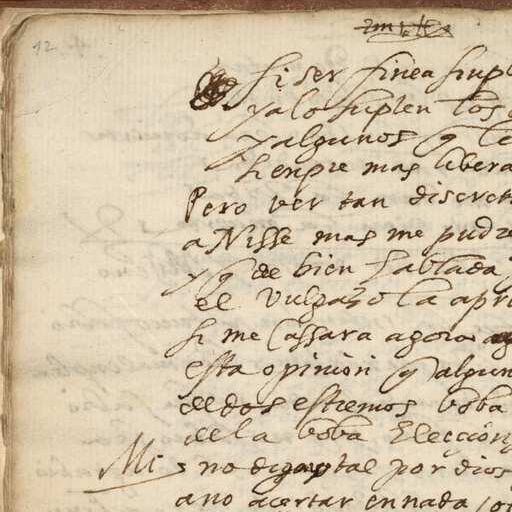 12
si ser finea simpl
ya lo suplen los
y algunos q le
sienpre mas libera
Pero ver tan discret
a Nisse mas me pudre
y q de bien hablada
el vulgazo la apr
si me cassara agora
esta opinion q algun
de dos estremos boba
de la boba Eleccion
Mi s no digays tal por dios
a no acertar en nada